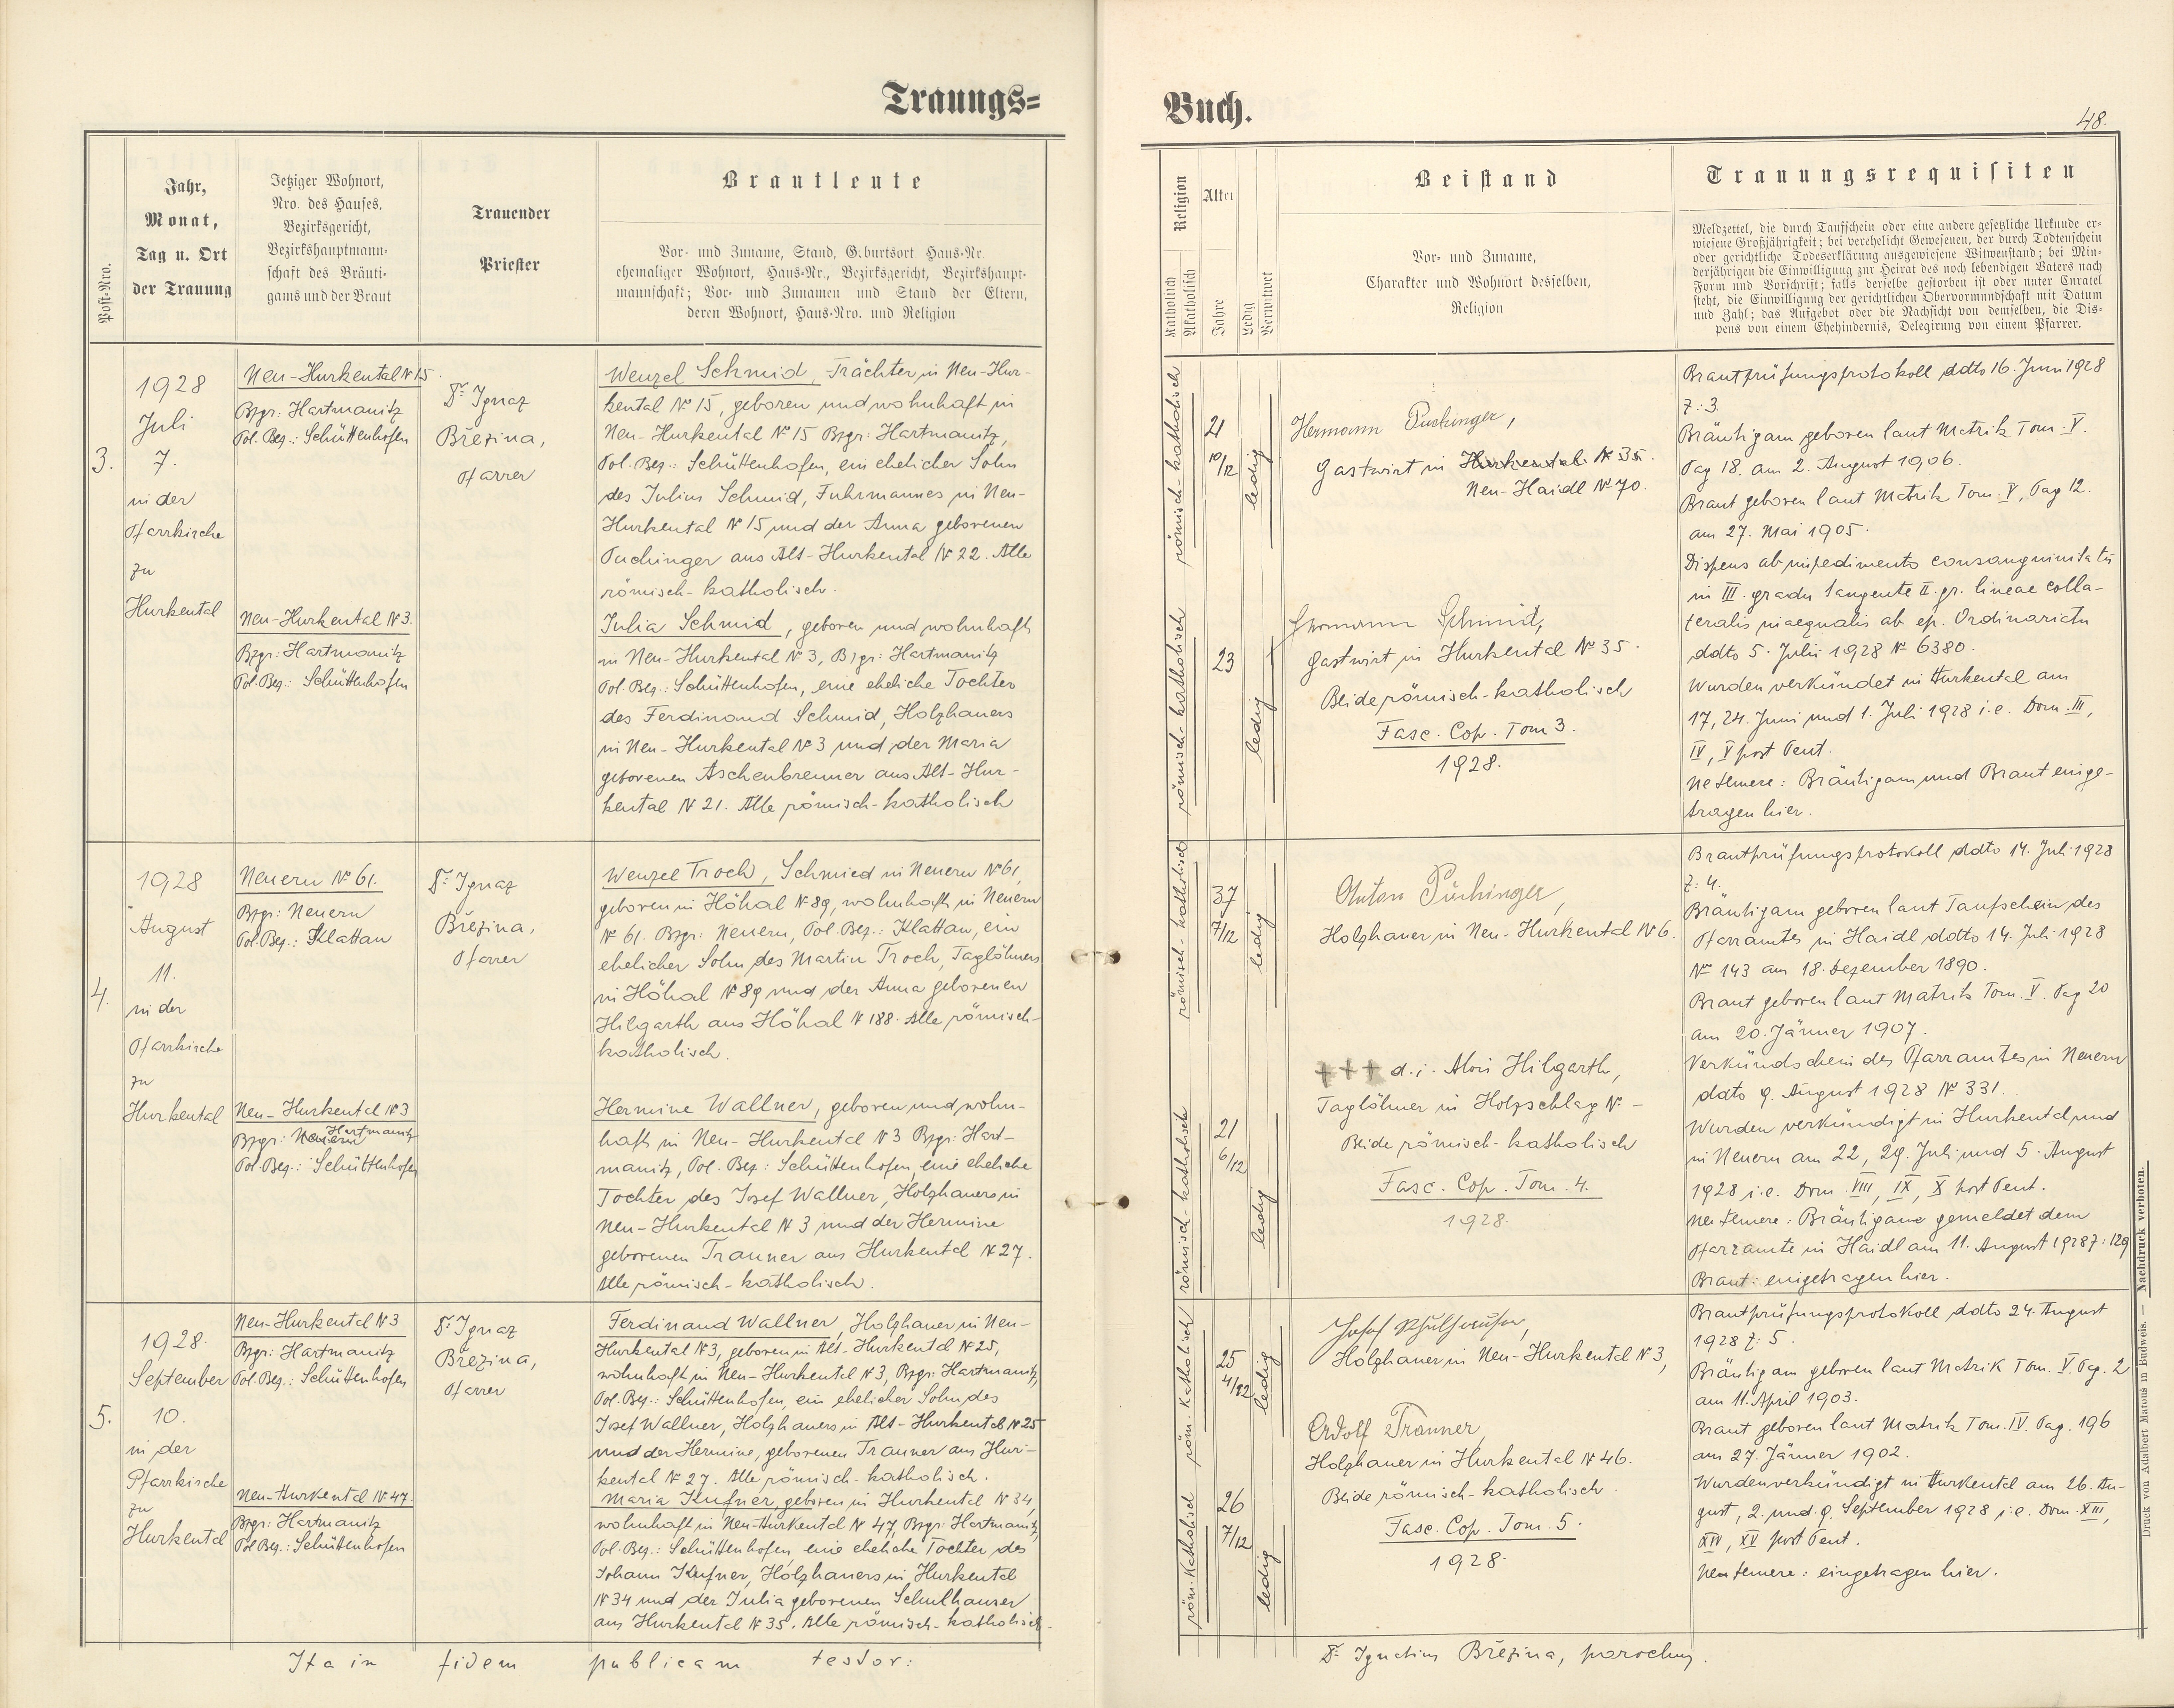 Trauungs=
Post-Nro.
Jahr,
Monat,
Tag u. Ort
der Trauung
Jetziger Wohnort,
Nro. des Hauses,
Bezirksgericht,
Bezirkshauptmann-
schaft des Bräuti-
gams und der Braut
Trauender
Priester
Brautleute
Vor- und Zuname, Stand, Geburtsort Haus-Nr.
ehemaliger Wohnort, Haus-Nr., Bezirksgericht, Bezirkshaupt-
mannschaft; Vor- und Zunamen und Stand der Eltern,
deren Wohnort, Haus-Nro. und Religion
3.
1928
Juli
7.
in der
Pfarrkirche
zu
Hurkental
Neu-Hurkental № 15.
Bzgr: Hartmanitz
Pol. Bez.: Schüttenhofen
Neu-Hurkental № 3.
Bzgr: Hartmanitz
Pol. Bez.: Schüttenhofen
Dr. Ignaz
Březina,
Pfarrer
Wenzel Schmid, Trächter in Neu-Hur-
kental № 15, geboren und wohnhaft in
Neu-Hurkental № 15 Bzgr: Hartmanitz,
Pol. Bez.: Schüttenhofen, ein ehelicher Sohn
des Julius Schmid, Fuhrmannes in Neu-
Hurkental № 15 und der Anna geborenen
Puchinger aus Alt-Hurkental № 22. Alle
römisch-katholisch.
Julia Schmid, geboren und wohnhaft
in Neu-Hurkental № 3, Bzgr: Hartmanitz
Pol. Bez.: Schüttenhofen, eine eheliche Tochter
des Ferdinand Schmid, Holzhauers
in Neu-Hurkental № 3 und der Maria
geborenen Aschenbrenner aus Alt-Hur-
kental № 21. Alle römisch-katholisch
4.
1928
August
11.
in der
Pfarrkirche
zu
Hurkental
Neuern № 61.
Bzgr: Neuern
Pol. Bez.: Klattau
Neu-Hurkental № 3
Hartmanitz
Bzgr: Neuern
Pol. Bez.: Schüttenhofen
Dr. Ignaz
Březina,
Pfarrer
Wenzel Troch, Schmied in Neuern № 61,
geboren in Höhal № 89, wohnhaft in Neuern
№ 61. Bzgr: Neuern, Pol. Bez.: Klattau, ein
ehelicher Sohn des Martin Troch, Taglöhners
in Höhal № 89 und der Anna geborenen
Hilgarth aus Höhal № 188. Alle römisch-
katholisch.
Hermine Wallner, geboren und wohn-
haft in Neu-Hurkental № 3 Bzgr: Hart-
manitz, Pol. Bez.: Schüttenhofen, eine eheliche
Tochter des Josef Wallner, Holzhauers in
Neu-Hurkental № 3 und der Hermine
geborenen Tranner aus Hurkental № 27.
Alle römisch-katholisch.
5.
1928.
September
10.
in der
Pfarrkirche
zu
Hurkental
Neu-Hurkental № 3
Bzgr: Hartmanitz
Pol. Bez.: Schüttenhofen
Neu-Hurkental № 47.
Bzgr: Hartmanitz
Pol Bez.: Schüttenhofen
Dr. Ignaz
Březina,
Pfarrer
Ferdinand Wallner, Holzhauer in Neu-
Hurkental № 3, geboren in Alt-Hurkental № 25,
wohnhaft in Neu-Hurkental № 3, Bzgr: Hartmanitz,
Pol. Bez.: Schüttenhofen, ein ehelicher Sohn des
Josef Wallner, Holzhauers in Alt-Hurkental № 25
und der Hermine, geborenen Tranner aus Hur-
kental № 27. Alle römisch-katholisch.
Maria Kufner, geboren in Hurkental № 34,
wohnhaft in Neu-Hurkental № 47, Bzgr: Hartmanitz,
Pol. Bez.: Schüttenhofen, eine eheliche Tochter des
Johann Kufner, Holzhauers in Hurkental
№ 34 und der Julia geborenen Schulhauser
aus Hurkental № 35. Alle römisch-katholisch.
Ita in fidem publicam testor:
Buch.
48.
Religion
Katholisch
Akatholisch
Alter
Jahre
Ledig
Verwitwet
Beistand
Vor- und Zuname,
Charakter und Wohnort desselben,
Religion
Trauungsrequisiten
Meldzettel, die durch Taufschein oder eine andere gesetzliche Urkunde er-
wiesene Großjährigkeit; bei verehelicht Gewesenen, der durch Todtenschein
oder gerichtliche Todeserklärung ausgewiesene Witwenstand; bei Min-
derjährigen die Einwilligung zur Heirat des noch lebendigen Vaters nach
Form und Vorschrift; falls derselbe gestorben ist oder unter Curatel
steht, die Einwilligung der gerichtlichen Obervormundschaft mit Datum
und Zahl; das Aufgebot oder die Nachsicht von demselben, die Dis-
pens von einem Ehehindernis, Delegirung von einem Pfarrer.
römisch-katholisch
21
10/12
ledig
römisch-katholisch
23
ledig
Hermann Puchinger,
Gastwirt in Hurkental № 35.
Neu-Haidl № 70.
Hermann Schmid,
Gastwirt in Hurkental № 35.
Beide römisch-katholisch
Fasc. Cop. Tom 3.
1928.
Brautprüfungsprotokoll ddto 16. Juni 1928
Z: 3.
Bräutigam geboren laut Matrik Tom. V.
Pag 18. am 2. August 1906.
Braut geboren laut Matrik Tom. V, Pag 12.
am 27. Mai 1905.
Dispens ab impedimento consanguinitatis
in III. gradu tangente II. gr. lineae colla-
teralis inaequalis ab ep. Ordinariatu
ddto 5. Julii 1928 № 6380.
Wurden verkündet in Hurkental am
17, 24. Juni und 1. Juli 1928 i.e. Dom. III,
IV, V post Pent.
Ne temere: Bräutigam und Braut einge-
tragen hier.
römisch-katholisch
37
7/12
ledig
römisch-katholisch
21
6/12
ledig
Anton Puchinger,
Holzhauer in Neu-Hurkental № 6.
+++ d.i. Alois Hilgarth,
Taglöhner in Holzschlag № -
Beide römisch-katholisch
Fasc. Cop. Tom. 4.
1928.
Brautprüfungsprotokoll ddto 14. Juli 1928
Z: 4.
Bräutigam geboren laut Taufschein des
Pfarramtes in Haidl ddto 14. Juli 1928
№ 143 am 18. Dezember 1890.
Braut geboren laut Matrik Tom. V. Pag 20
am 20. Jänner 1907.
Verkündschein des Pfarramtes in Neuern
ddto 9. August 1928 № 331.
Wurden verkündigt in Hurkental und
in Neuern am 22, 29. Juli und 5. August
1928 i.e. Dom. VIII, IX, X post Pent.
Ne temere: Bräutigam gemeldet dem
Pfarramte in Haidl am 11. August 1928 Z: 129
Braut: eingetragen hier.
röm. katholisch
25
4/12
ledig
röm. katholisch
26
7/12
ledig
Josef Schulhauser,
Holzhauer in Neu-Hurkental № 3,
Adolf Tranner,
Holzhauer in Hurkental № 46.
Beide römisch-katholisch.
Fasc. Cop. Tom. 5.
1928.
Brautprüfungsprotokoll ddto 24. August
1928 Z: 5.
Bräutigam geboren laut Matrik Tom. V. Pag. 2
am 11. April 1903.
Braut geboren laut Matrik Tom. IV. Pag. 196
am 27. Jänner 1902.
Wurden verkündigt in Hurkental am 26. Au-
gust, 2. und 9. September 1928 i.e. Dom. XIII,
XIV, XV post Pent.
Ne temere: eingetragen hier.
Dr. Ignatius Březina, parochus.
Druck von Adalbert Matouš in Budweis. — Nachdruck verboten.